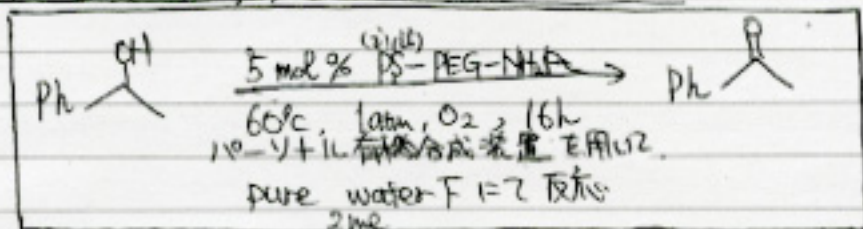 OH
O
Ph
5 mol% PS-PEG-NH₂
Ph
60°C, 1atm, O₂, 16h
パーソナル有機合成装置を用いて
pure water下にて反応
2 ml